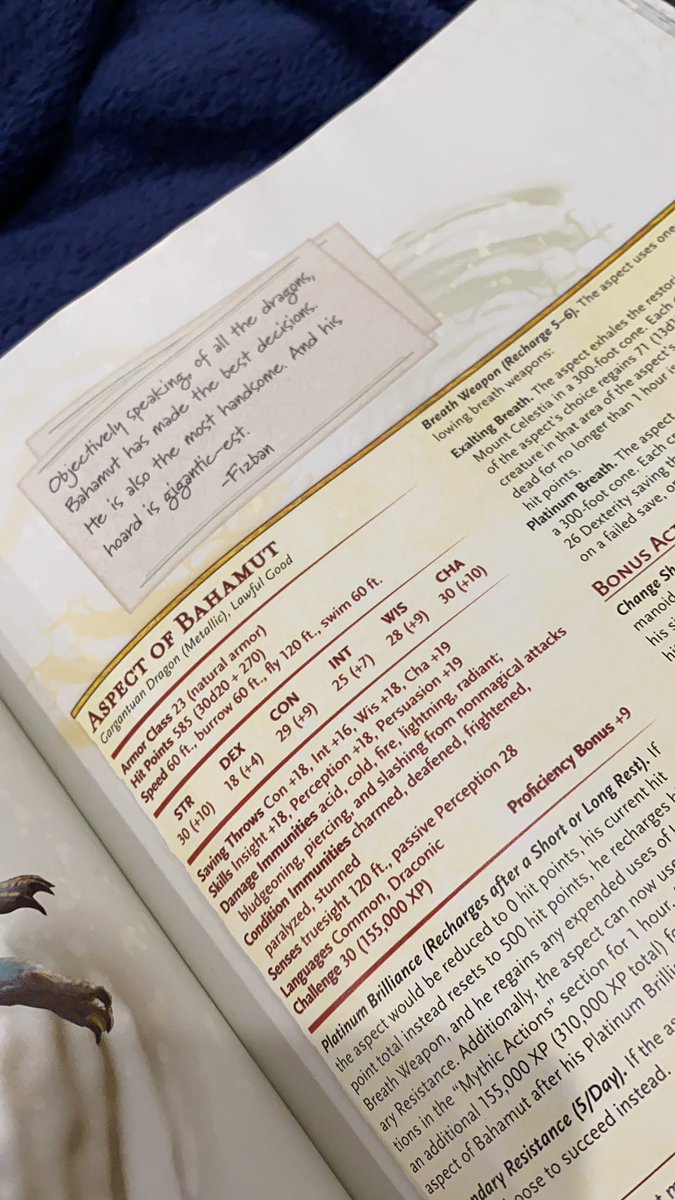 Objectively speaking, of all the dragons,
Bahamut has made the best decisions.
He is also the most handsome. And his
hoard is gigantic-est.
-Fizban
ASPECT OF BAHAMUT
Gargantuan Dragon (Metallic), Lawful Good
Armor Class 23 (natural armor)
Hit Points 585 (30d20 + 270)
Speed 60 ft., burrow 60 ft., fly 120 ft., swim 60 ft.
STR DEX CON INT WIS CHA
30 (+10) 18 (+4) 29 (+9) 25 (+7) 28 (+9) 30 (+10)
Saving Throws Con +18, Int +16, Wis +18, Cha +19
Skills Insight +18, Perception +18, Persuasion +19
Damage Immunities acid, cold, fire, lightning, radiant;
bludgeoning, piercing, and slashing from nonmagical attacks
Condition Immunities charmed, deafened, frightened,
paralyzed, stunned
Senses truesight 120 ft., passive Perception 28
Languages Common, Draconic
Challenge 30 (155,000 XP) Proficiency Bonus +9
Platinum Brilliance (Recharges after a Short or Long Rest). If
the aspect would be reduced to 0 hit points, his current hit
point total instead resets to 500 hit points, he recharges
Breath Weapon, and he regains any expended uses of
ary Resistance. Additionally, the aspect can now use
tions in the “Mythic Actions” section for 1 hour.
an additional 155,000 XP (310,000 XP total)
aspect of Bahamut after his Platinum
ndary Resistance (5/Day). If the
oose to succeed instead.
Breath Weapon (Recharge 5–6). The aspect uses one
lowing breath weapons:
Exalting Breath. The aspect exhales the
Mount Celestia in a 300-foot cone. Each
of the aspect's choice regains 71
creature in that area of the aspect's
dead for no longer than 1 hour is
hit points.
Platinum Breath. The aspect
a 300-foot cone. Each
26 Dexterity saving
on a failed save,
BONUS
Change
manoid
his